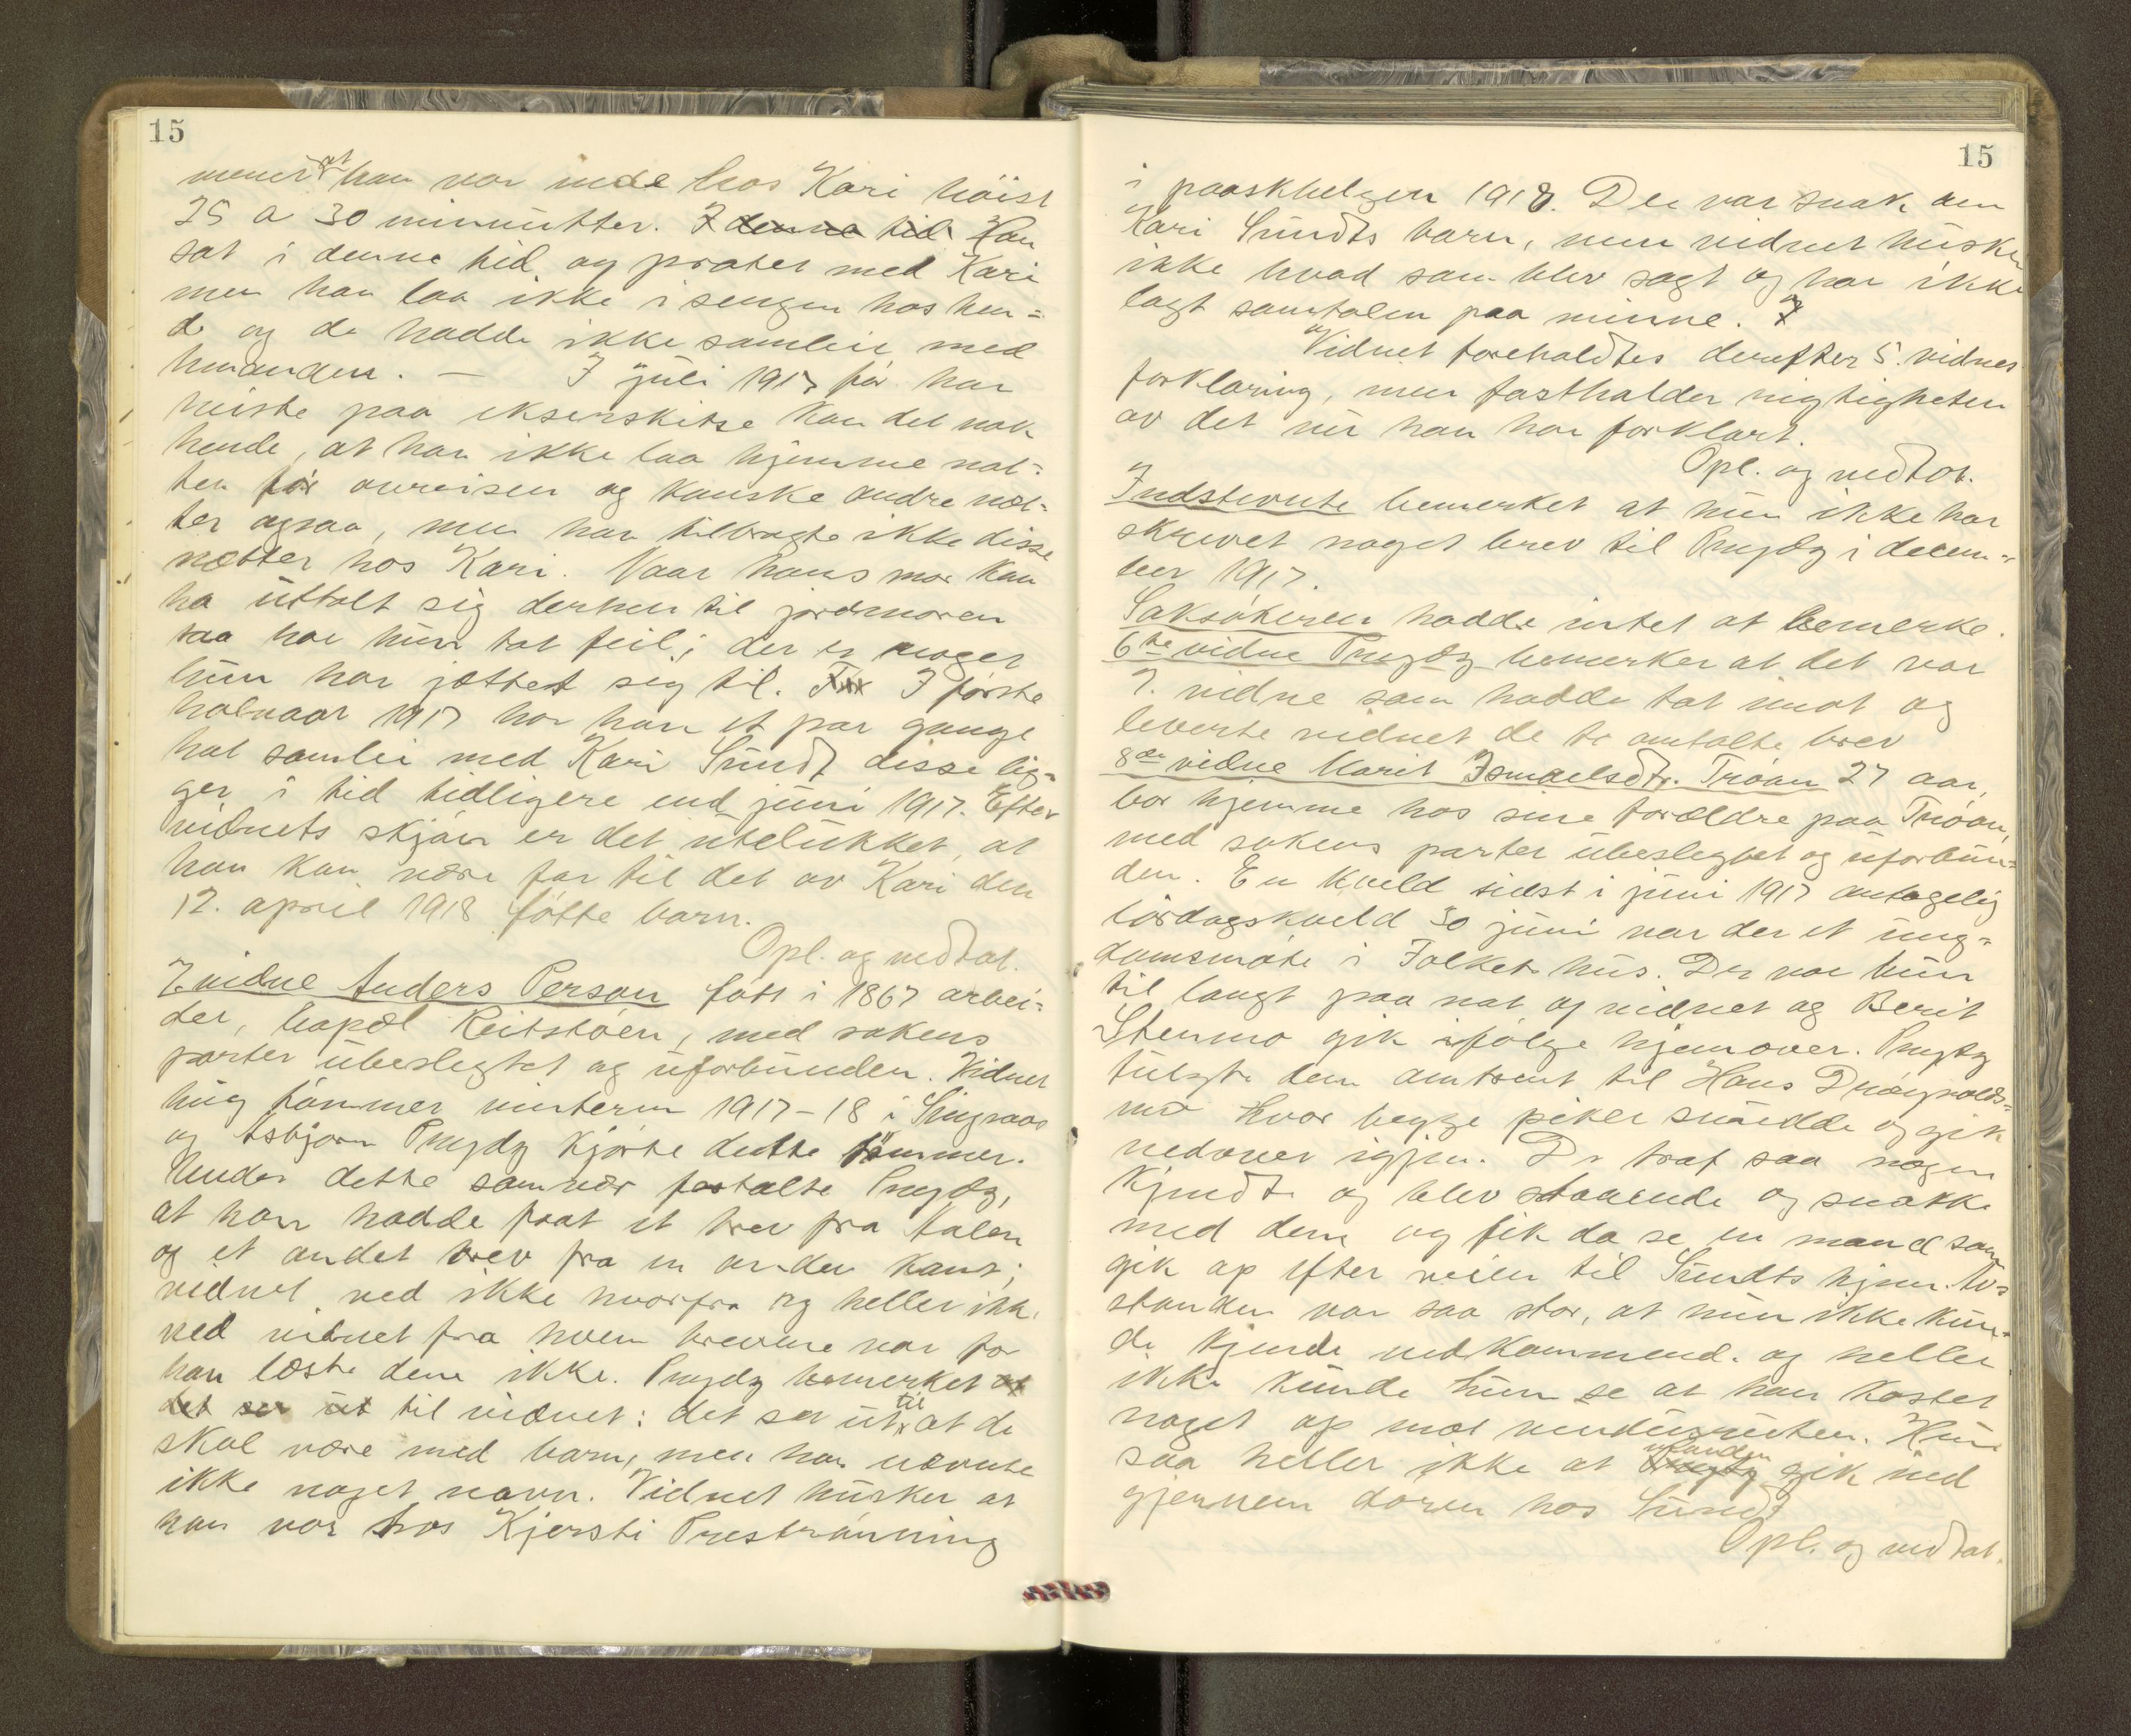 15
mener at han var inde hos Kari höist
25 a 30 minutter. I denne tid Han
sat i denne tid og pratet med Kari
men han laa ikke i sengen hos hen=
de og de hadde ikke samleie med
hinanden. — I juli 1917 för han
reiste paa ekserskitse kan det nok
hende, at han ikke laa hjemme nat=
ten för avreisen og kanske andre næt=
ter ogsaa, men han tilbragte ikke disse
nætter hos Kari. Naar hans mor kan
ha uttalt sig derhen til jordmoren
saa har hun tat feil; der er noget
hun har jættet sig til. I förste
halvaar 1917 har han et par gange
hat samleie med Kari Sundt disse lig=
ger i tid tidligere end juni 1917. Efter
vidnets skjön er det utelukket, at
han kan være far til det av Kari den
12. april 1918 fötte barn.
Opl. og vedtat.
7. vidne Anders Person föt i 1867 arbei=
der, bopæl Reitstöen, med sakens
parter ubeslegtet og uforbunden. Vidnet
hug tömmer vinteren 1917-18 i Singsaas
og Asbjörn Prugdy kjörte dette tömmer.
Under dette samvær fortalte
at han hadde faat et brev fra Aalen
og et andet brev fra en anden kant;
vidnet ved ikke hvorfra og heller ikke
ved vidnet fra hvem brevene var for
han læste dem ikke. bemerket at
det ser ut til vidnet: det ser ut til at de
skal være med barn, men han nævnte
ikke noget navn. Vidnet husker at
han var hos Kjersti Preströnning
15
i paaskhelgen 1918. Der var snak om
Kari Sundts barn, men vidnet husker
ikke hvad som blev sagt og har ikke
lagt samtalen paa minne.
Vidnet foreholdtes derefter 5. vidnes
forklaring, men fastholder rigtigheten
av det nu han har forklart.
Opl. og vedtat.
Indstevnte bemerket at hun ikke har
skrevet noget brev til i decem=
ber 1917.
Saksökeren hadde intet at bemerke.
6te vidne bemerker at det var
7. vidne som hadde tat imot og
leverte vidnet de to omtalte brev
8de vidne Marit Ismaelsdtr. Tröan 27 aar,
bor hjemme hos sine forældre paa Tröan,
med sakens parter ubeslegtet og uforbun=
den. En kveld sidst i juni 1917 antagelig
lördagskveld 30 juni var der et ung=
domsmöte i Folkets hus. Der var hun
til langt paa nat og vidnet og Berit
Stenmo gik ifölge hjemover.
fulgte dem omtrent til Hans
mo hvor begge piker snudde og gik
nedover igjen. De traf saa nogen
kjendte og blev staaende og snakke
med dem og fik da se en mand som
gik op efter veien til Sundts hjem. Av=
standen var saa stor, at hun ikke kun=
de kjende vedkommende og heller
ikke kunde hun se at han kastet
noget op mot vindusruten. Hun
saa heller ikke at manden gik ind
gjennem dören hos Sundt
Opl. og vedtat.